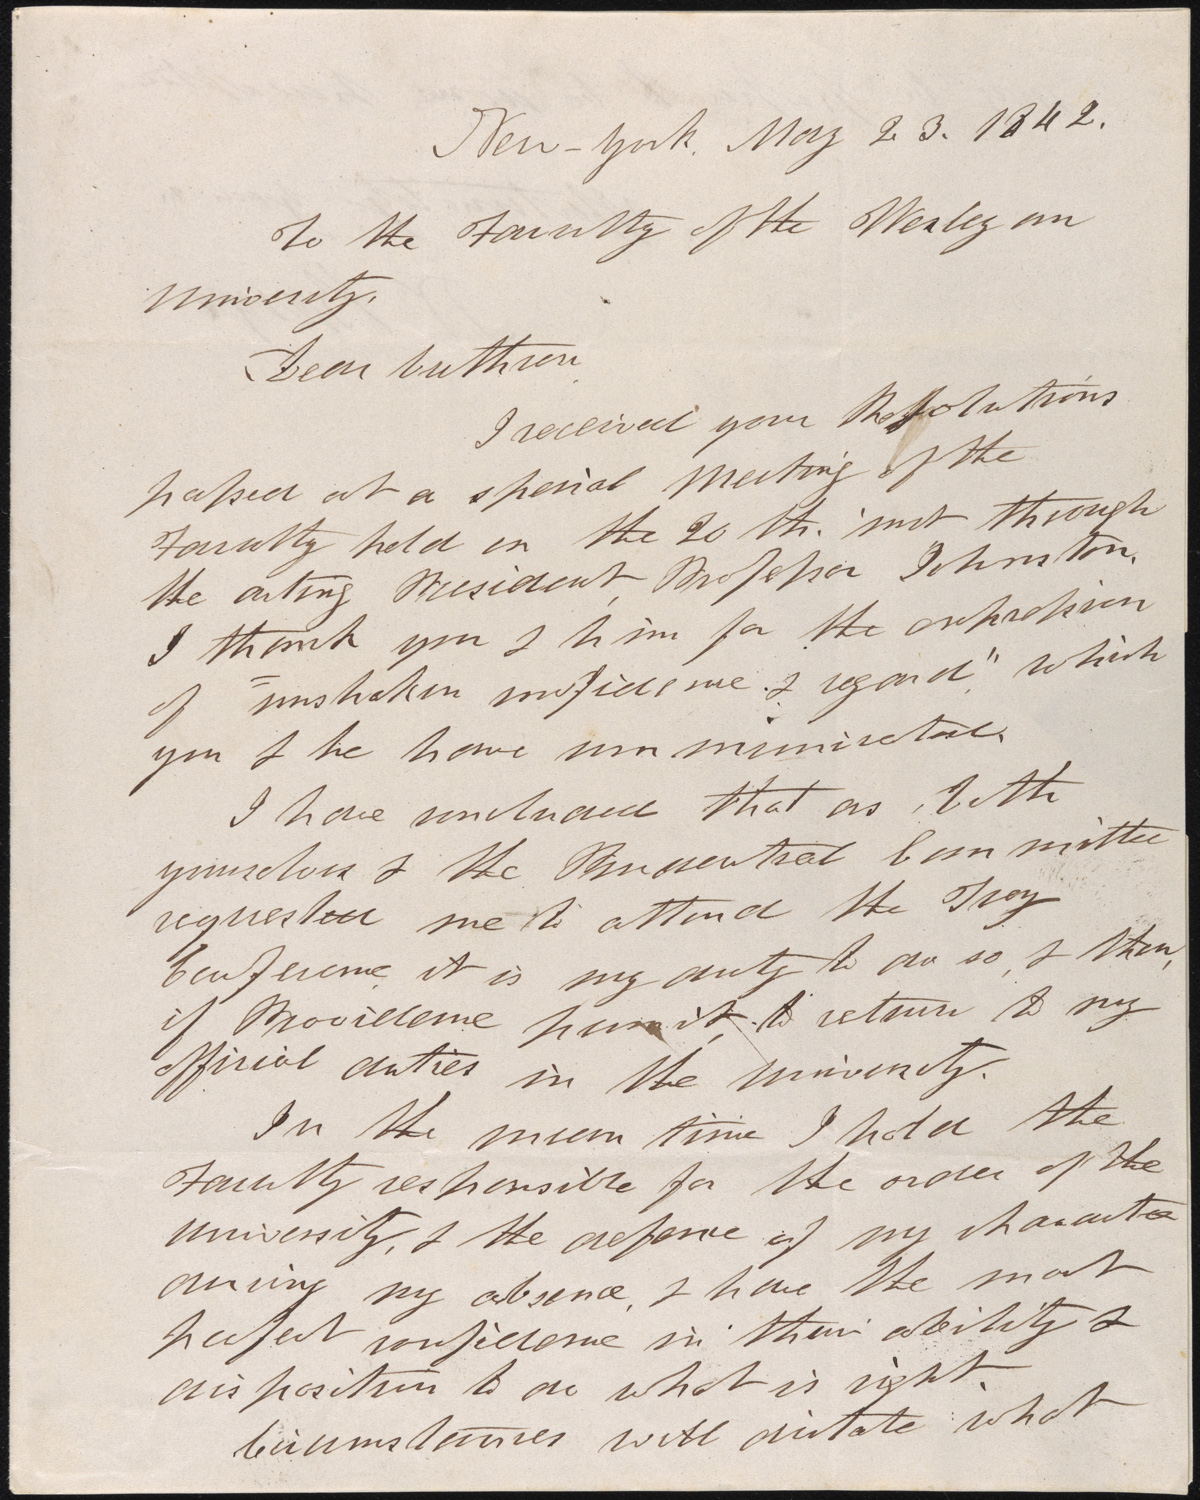 New-York, May 23. 1842.
To the Faculty of the Wesleyan
University.
Dear brethren,
I received your Resolutions
passed at a special meeting of the
Faculty held on the 20th. inst through
the acting President, Professor Johnston.
I thank you & him for the expression
of "unshaken confidence & regard," which
you & he have communicated.
I have concluded that as both
yourselves & the Prudential Committee
requested me to attend the Troy
Conference, it is my duty to do so, & then,
if Providence permit, to return to my
official duties in the University.
In the mean time I hold the
Faculty responsible for the order of the
University, & the defence of my character
during my absence, & have the most
perfect confidence in their ability &
disposition to do what is right.
Circumstances will dictate what